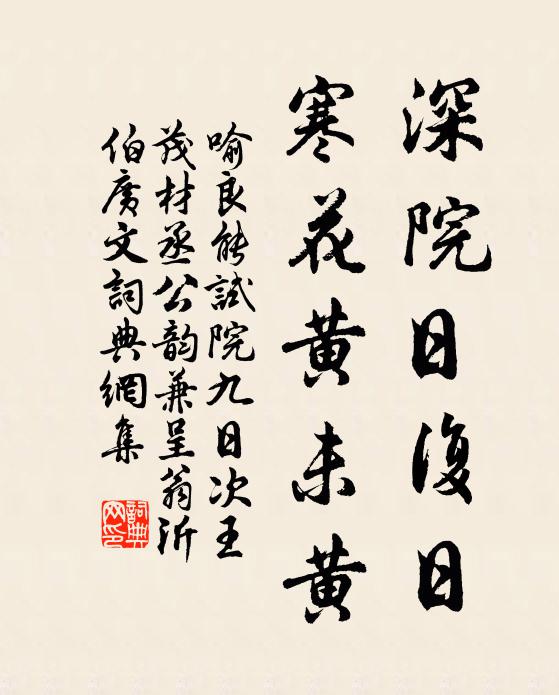 深院日復日
寒花黄未黄
喻良能試院九日次王
茂材丞公韵兼呈翁沂
伯廣文詞典網集
詞典网印